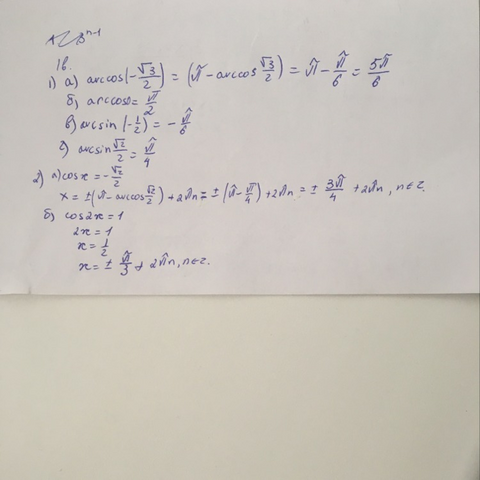 1в.
1) а) arccos(-√3/2) = (π - arccos √3/2) = π - π/6 = 5π/6
б) arccos0 = π/2
в) arcsin(-1/2) = - π/6
г) arcsin √2/2 = π/4
2) а) cos x = - √2/2
x = ±(π - arccos √2/2) + 2πn = ±(π - π/4) + 2πn = ± 3π/4 + 2πn, n∈z.
б) cos2x = 1
2x = 1
x = 1/2
x = ± π/3 + 2πn, n∈z.